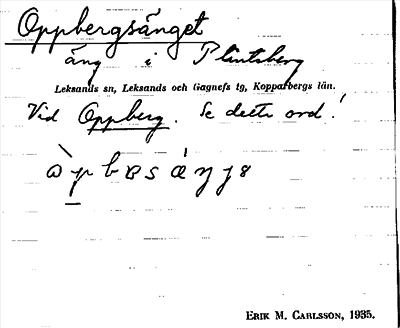 Oppbergsänget
äng i Plintsberg
Leksands sn, Leksands och Gagnefs tg, Kopparbergs län.
Vid Oppberg. Se detta ord!
ERIK M. CARLSSON, 1935.